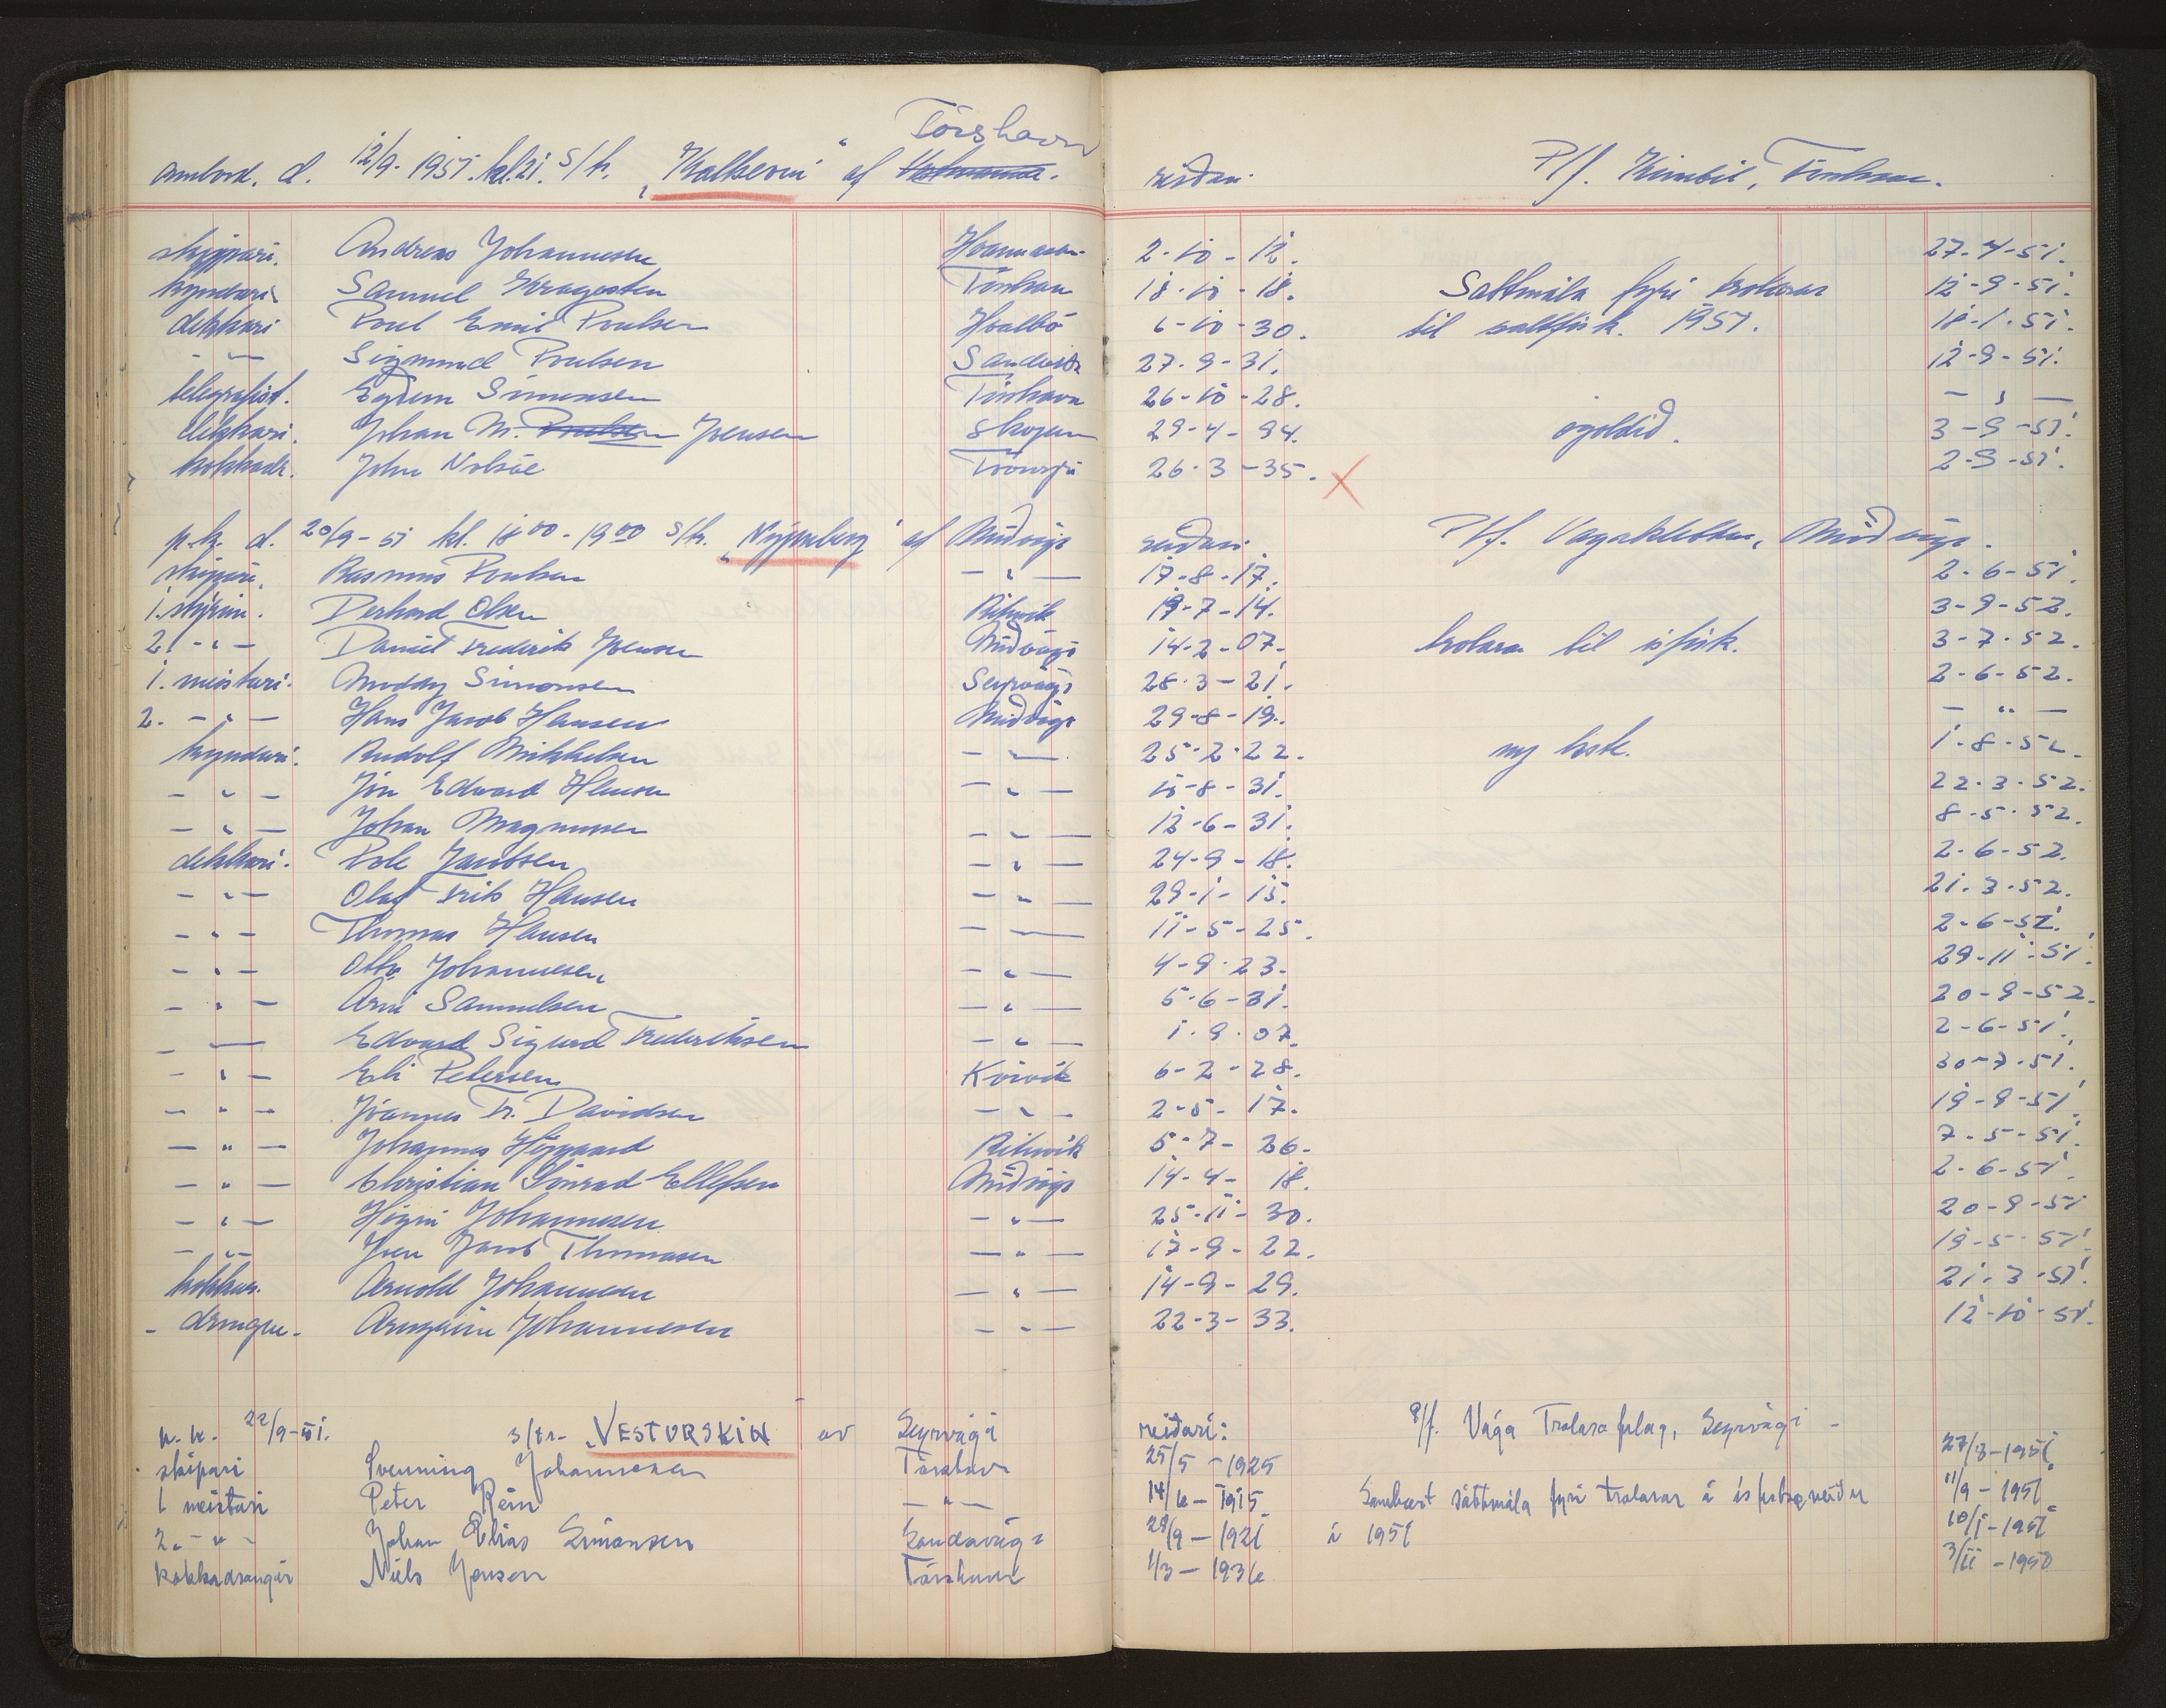 Tórshavn
umbord. d. 12/9-1951. kl. 21. S/tr. „Kallsevni“ af reiðari P/f. Kimbil, Tórshavn.
skippari. Andreas Johannesen 2-10-12. 27-4-51.
kyndari Samuel Kragesteen Tórshavn 18-10-18. Sáttmála fyri trolarar 12-9-51.
dekkari Poul Emil Poulsen Hvalbø 6-10-30. til saltfisk. 1951. 18-1-51.
- " - Sigmund Poulsen 27-9-31. 12-9-51.
telegrafist. Eyðun Simonsen Tórshavn 26-10-28. - " -
dekkari. Johan M. Poulsen Joensen Skopun 29-4-94. ógoldið. 3-9-51.
kokkadr. John Nolsøe 26-3-35. X 2-9-51.
p.k. d. 20/9-51 kl. 18 00 - 19 00 S/tr. „Nýpuberg“ af Miðvági reiðari P/f. Vágaklettur, Miðvági.
skipari. Rasmus Poulsen - " - 17-8-17. 2-6-51.
1. stýrim. Derhard Olsen 19-7-14. 3-9-52.
2. - " - Daniel Frederik Joensen Miðvági 14-2-07. trolarar til ísfisk. 3-7-52.
1. meistari. Simonsen Sørvági 28-3-21. 2-6-52.
2. - " - Hans Jacob Hansen Miðvági 29-8-19. - " -
kyndari. Rudolf Mikkelsen - " - 25-2-22. ny liste. 1-8-52.
- " - Jón Edward Hansen - " - 10-8-31. 22-3-52.
- " - Johan Magnussen - " - 12-6-31. 8-5-52.
dekkari. Pole Jacobsen - " - 24-9-18. 2-6-52.
- " - Olaf Frits Hansen - " - 29-1-15. 21-3-52.
- " - Thomas Hansen - " - 11-5-25. 2-6-52.
- " - Otto Johannesen - " - 4-9-23. 29-11-51.
- " - Arni Samuelsen - " - 5-6-31. 20-9-52.
- " - Edvard Sigurd Frederiksen - " - 1-9-07. 2-6-51.
- " - Eli Petersen Kvívík 6-2-28. 30-7-51.
- " - Jóannes Fr. Davidsen - " - 2-5-17. 19-9-51.
- " - Johannes Højgaard 5-7-26. 7-5-51.
- " - Christian Konrad Ellefsen Miðvági 14-4-18. 2-6-51.
- " - Høgni Johannesen - " - 25-11-30. 20-9-51
- " - Jens Jacob Thomasen - " - 17-9-22. 19-5-51.
kokkur. Arnold Johannesen - " - 14-9-29. 21-3-51.
- drongur - Arngrim Johannesen - " - 22-3-33. 12-10-51.
p.k. 22/9-51. s/tr. „VESTURSKIN av Sørvági reiðari: P/f. Vága Trolarafelag, Sørvági -
skipari Svenning Johannesen Tórshavn 25/5-1925 27/3-1951
1 meistari Peter Rein - " - 14/6-1915 Sambært sáttmála fyri trolarar á ísfiskaveiðu 11/9-1951
2. - " - Johan Elias Simonsen Sandavági 29/9-1921 í 1951 10/1-1951
kokkadrongur Niels Jensen Tórshavn 1/3-1936 3/11-1950